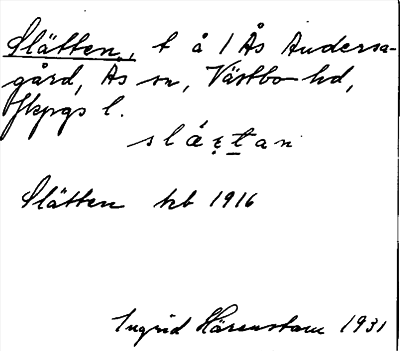 Slätten, t å 1 Ås Andersa-
gård, Ås sn, Västbo hd,
Jkpgs l.
slätan
Slätten kb 1916
Ingrid Härenstam 1931